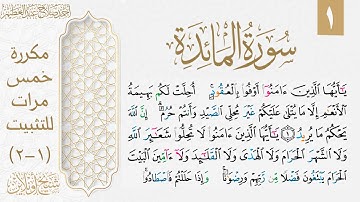 ١
سُورَةُ المَائِدَةِ
يَٰٓأَيُّهَا ٱلَّذِينَ ءَامَنُوٓا۟ أَوْفُوا۟ بِٱلْعُقُودِ ۚ أُحِلَّتْ لَكُم بَهِيمَةُ
ٱلْأَنْعَٰمِ إِلَّا مَا يُتْلَىٰ عَلَيْكُمْ غَيْرَ مُحِلِّى ٱلصَّيْدِ وَأَنتُمْ حُرُمٌ ۗ إِنَّ ٱللَّهَ
يَحْكُمُ مَا يُرِيدُ ١ يَٰٓأَيُّهَا ٱلَّذِينَ ءَامَنُوا۟ لَا تُحِلُّوا۟ شَعَٰٓئِرَ ٱللَّهِ
وَلَا ٱلشَّهْرَ ٱلْحَرَامَ وَلَا ٱلْهَدْىَ وَلَا ٱلْقَلَٰٓئِدَ وَلَآ ءَآمِّينَ ٱلْبَيْتَ
ٱلْحَرَامَ يَبْتَغُونَ فَضْلًا مِّن رَّبِّهِمْ وَرِضْوَٰنًا ۚ وَإِذَا حَلَلْتُمْ فَٱصْطَادُوا۟ ۚ
مكررة
خمس
مرات
للتثبيت
(١-٢)